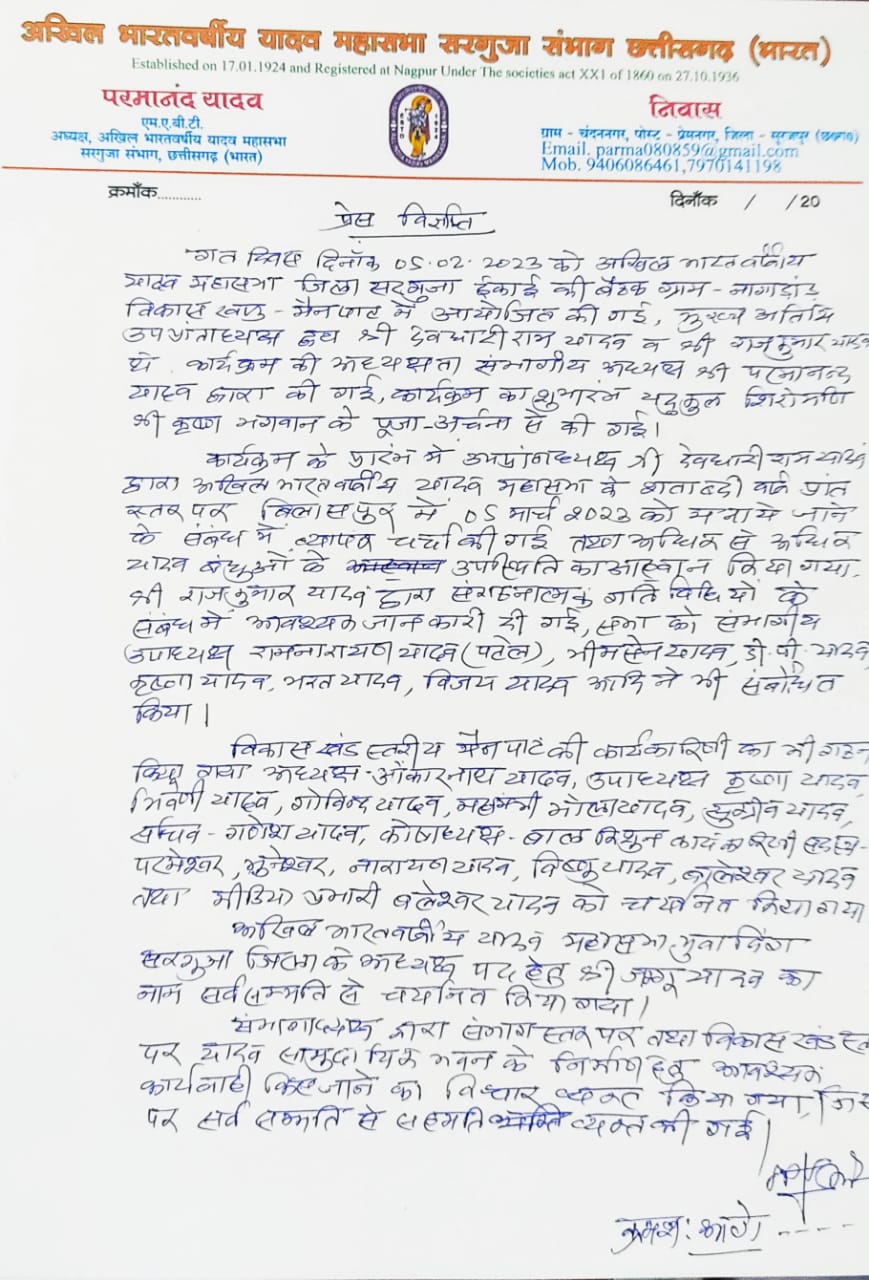 अखिल भारतवर्षीय यादव महासभा सरगुजा संभाग छत्तीसगढ़ (भारत)
Established on 17.01.1924 and Registered at Nagpur Under The societies act XXI of 1860 on 27.10.1936
परमानंद यादव
एम.ए.बी.टी.
अध्यक्ष, अखिल भारतवर्षीय यादव महासभा
सरगुजा संभाग, छत्तीसगढ़ (भारत)
निवास
ग्राम - चंदननगर, पोस्ट - प्रेमनगर, जिला - सूरजपुर (छ०ग०)
Email. parma080859@gmail.com
Mob. 9406086461,7970141198
क्रमाँक............
दिनाँक / /20
प्रेस विज्ञप्ति
गत दिवस दिनाँक 05.02.2023 को अखिल भारतवर्षीय
यादव महासभा जिला सरगुजा ईकाई की बैठक ग्राम - नागाडांड
विकास खण्ड - मैनपाट में आयोजित की गई, मुख्य अतिथि
उपप्रांताध्यक्ष द्वय श्री देवधारी राम यादव व श्री राजकुमार यादव
थे. कार्यक्रम की अध्यक्षता संभागीय अध्यक्ष श्री परमानन्द
यादव द्वारा की गई, कार्यक्रम का शुभारंभ यदुकुल शिरोमणि
श्री कृष्ण भगवान के पूजा-अर्चना से की गई।
कार्यक्रम के प्रारंभ में उपप्रांताध्यक्ष श्री देवधारी राम यादव
द्वारा अखिल भारतवर्षीय यादव महासभा के शताब्दी वर्ष प्रांत
स्तर पर बिलासपुर में 05 मार्च 2023 को मनाये जाने
के संबंध में व्यापक चर्चा की गई तथा अधिक से अधिक
यादव बंधुओं के उपस्थिति का आह्वान किया गया,
श्री राजकुमार यादव द्वारा संगठनात्मक गतिविधियों के
संबंध में आवश्यक जानकारी दी गई, सभा को संभागीय
उपाध्यक्ष रामनारायण यादव (पटेल), भीमसेन यादव, डी.पी. यादव
कृष्णा यादव, भरत यादव, विजय यादव आदि ने भी संबोधित
किया।
विकास खंड स्तरीय मैनपाट की कार्यकारिणी का भी गठन
किया गया अध्यक्ष - ओंकारनाथ यादव, उपाध्यक्ष कृष्णा यादव,
त्रिवेणी यादव, गोविन्द यादव, महामंत्री भोला यादव, सुग्रीव यादव,
सचिव - गणेश यादव, कोषाध्यक्ष - बाल किशुन कार्यकारिणी सदस्य -
परमेश्वर, भुनेश्वर, नारायण यादव, विष्णु यादव, बालेश्वर यादव
तथा मीडिया प्रभारी बलेश्वर यादव को चयनित किया गया
अखिल भारतवर्षीय यादव महासभा युवा विंग
सरगुजा जिला के अध्यक्ष पद हेतु श्री जग्गू यादव का
नाम सर्वसम्मति से चयनित किया गया।
संभागाध्यक्ष द्वारा संभाग स्तर पर तथा विकास खंड स्तर
पर यादव सामुदायिक भवन के निर्माण हेतु आवश्यक
कार्यवाही किए जाने का विचार व्यक्त किया गया, जिस
पर सर्व सम्मति से सहमति व्यक्त की गई।
क्रमशः आगे - - - - -